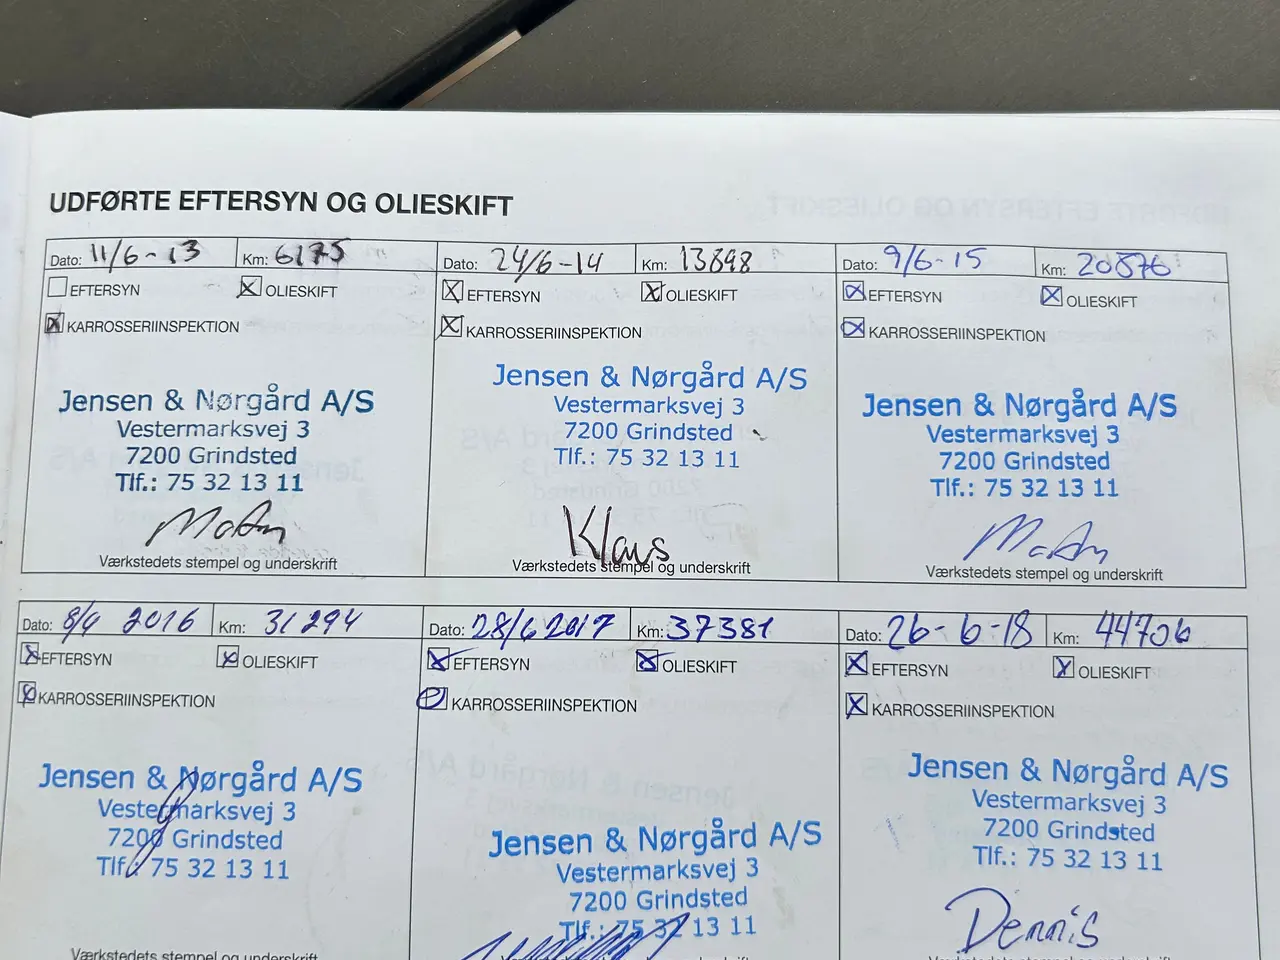 UDFØRTE EFTERSYN OG OLIESKIFT
Dato: 11/6-13 Km: 6175
EFTERSYN OLIESKIFT
KARROSSERIINSPEKTION
Jensen & Nørgård A/S
Vestermarksvej 3
7200 Grindsted
Tlf.: 75 32 13 11
Værkstedets stempel og underskrift
Dato: 24/6-14 Km: 13898
EFTERSYN OLIESKIFT
KARROSSERIINSPEKTION
Jensen & Nørgård A/S
Vestermarksvej 3
7200 Grindsted
Tlf.: 75 32 13 11
Klaus
Værkstedets stempel og underskrift
Dato: 9/6-15 Km: 20876
EFTERSYN OLIESKIFT
KARROSSERIINSPEKTION
Jensen & Nørgård A/S
Vestermarksvej 3
7200 Grindsted
Tlf.: 75 32 13 11
Værkstedets stempel og underskrift
Dato: 8/4 2016 Km: 31294
EFTERSYN OLIESKIFT
KARROSSERIINSPEKTION
Jensen & Nørgård A/S
Vestermarksvej 3
7200 Grindsted
Tlf.: 75 32 13 11
Værkstedets stempel og underskrift
Dato: 28/6 2017 Km: 37381
EFTERSYN OLIESKIFT
KARROSSERIINSPEKTION
Jensen & Nørgård A/S
Vestermarksvej 3
7200 Grindsted
Tlf.: 75 32 13 11
Dato: 26-6-18 Km: 44706
EFTERSYN OLIESKIFT
KARROSSERIINSPEKTION
Jensen & Nørgård A/S
Vestermarksvej 3
7200 Grindsted
Tlf.: 75 32 13 11
Dennis